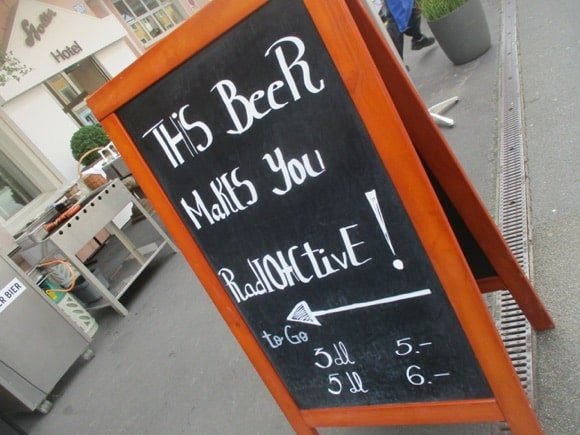 Hotel
THiS BeeR
MaKES You
RadIOACtivE!
to Go
3dl 5.-
5dl 6.-
BIER